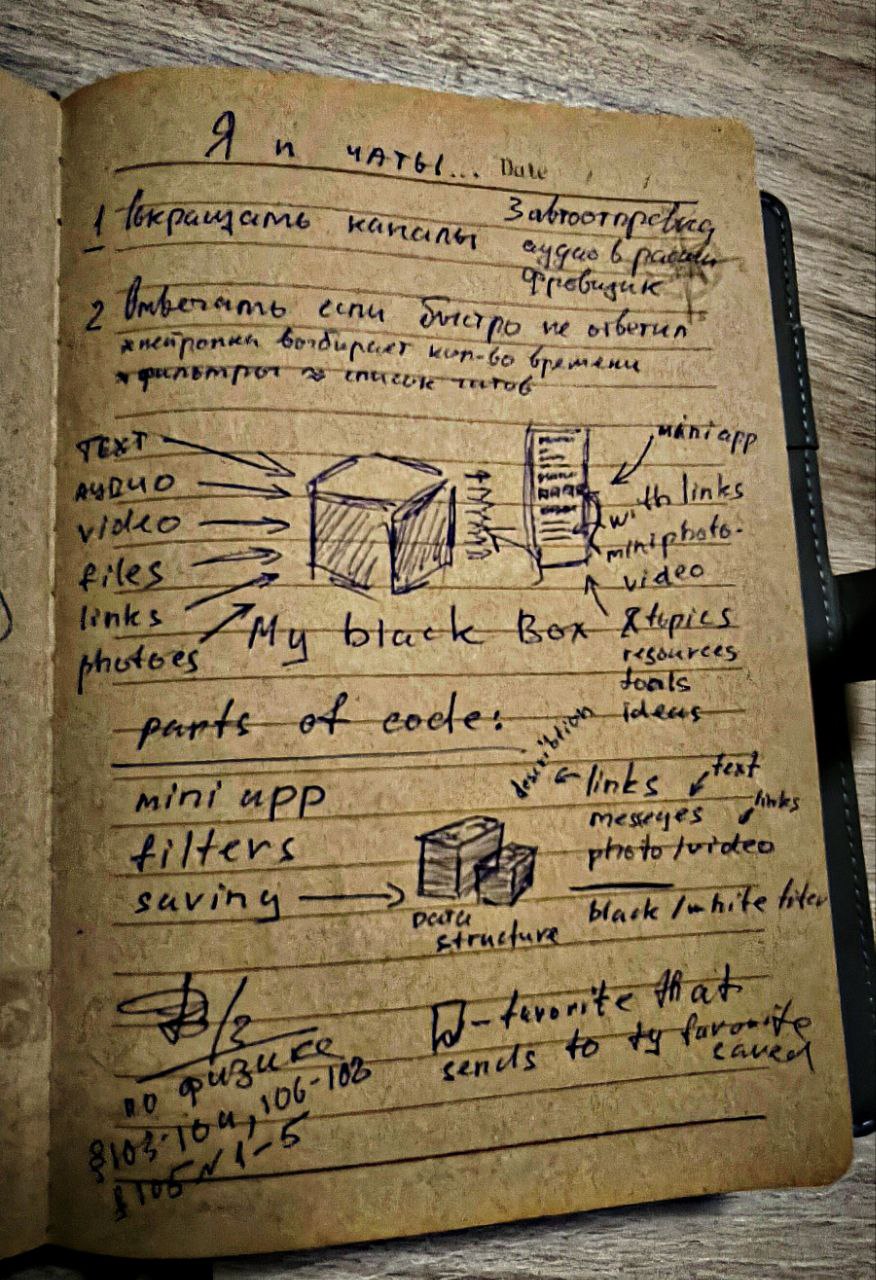 Я и чаты...
Date
1 сокращать каналы
3 автоотправка
аудио в
2 Отвечать если быстро не ответил
* нейронка выбирает кол-во времени
* фильтры список чатов
TEXT
АУДИО
video
files
links
photoes
My black Box
mini app
with links
mini photo-
video
& topics
resources
tools
ideas
parts of code:
mini app
filters
saving
Data
structure
description
links
text
messeges
links
photo/video
black/white filter
- favorite that
sends to tg favorite
saved
Д/з
по физике
§103-104, 106-108
§105 № 1-5